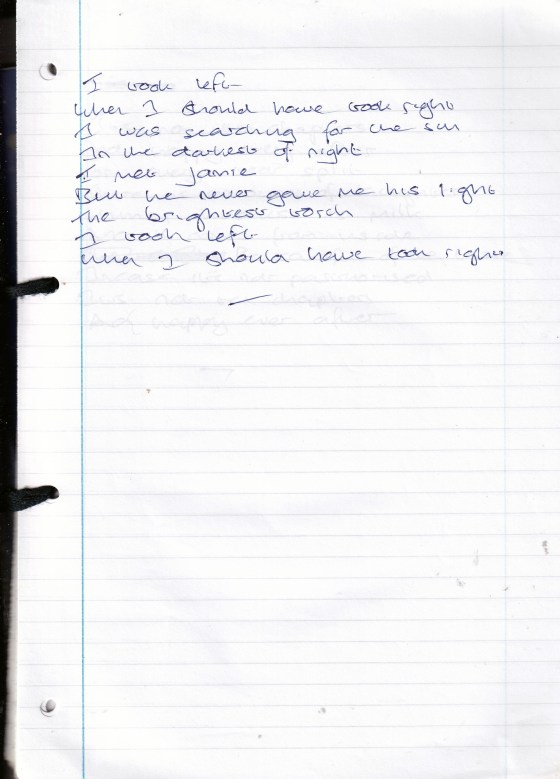 I took left
when I should have took right
I was searching for the sun
In the darkest of night
I met Jamie
But he never gave me his light
the brightest torch
I took left
when I should have took right
And happy ever after